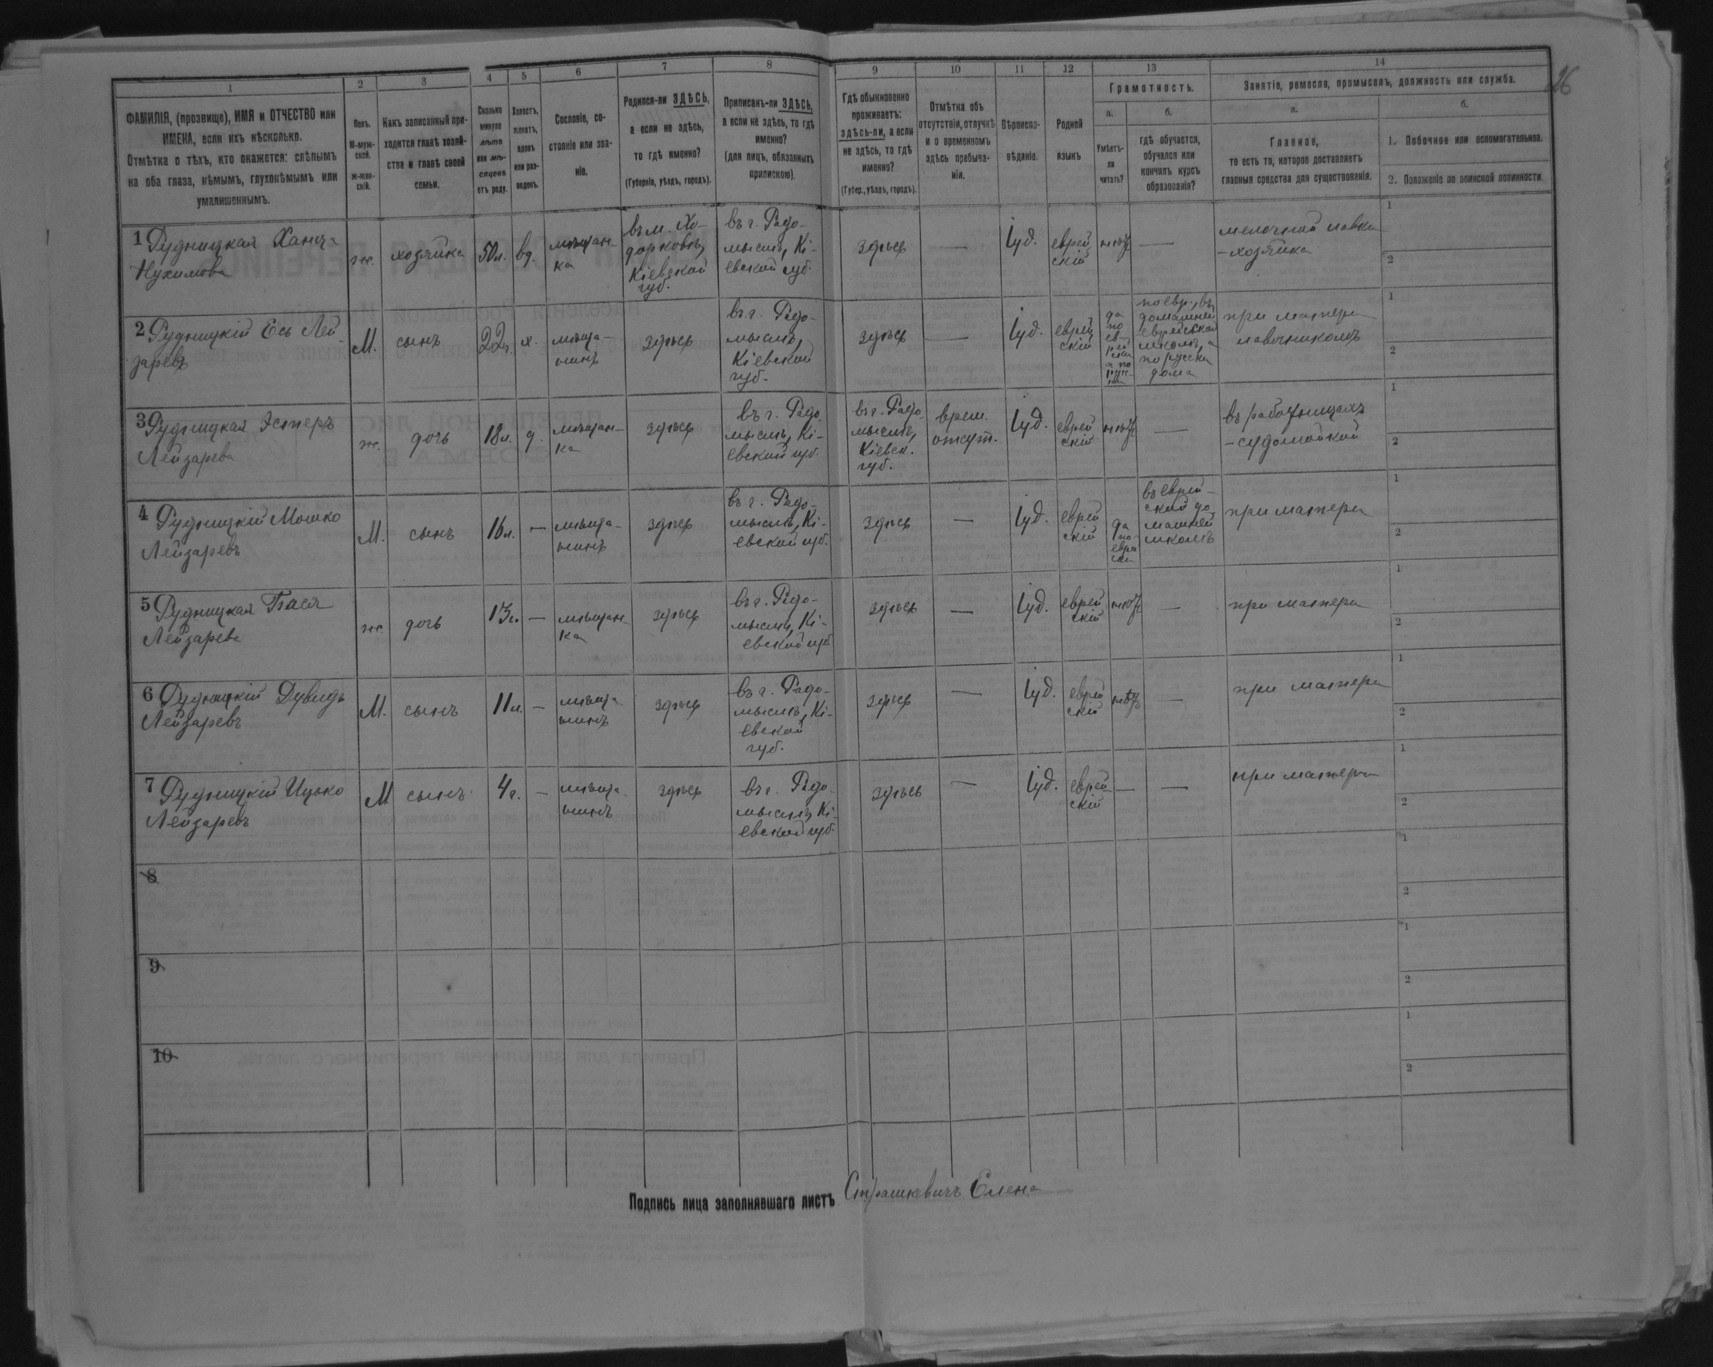 1 2 3 4 5 6 7 8 9 10 11 12 13 14
26
ФАМИЛІЯ, (прозвище), ИМЯ и ОТЧЕСТВО или
ИМЕНА, если ихъ нѣсколько.
Отмѣтка о тѣхъ, кто окажется: слѣпымъ
на оба глаза, нѣмымъ, глухонѣмымъ или
умалишеннымъ.
Полъ.
М-муж-
ской.
Ж-жен-
скій.
Какъ записанный при-
ходится главѣ хозяй-
ства и главѣ своей
семьи.
Сколько
минуло
лѣтъ
или мѣ-
сяцевъ
отъ роду.
Холостъ,
женатъ,
вдовъ
или раз-
веденъ.
Сословіе, со-
стояніе или зва-
ніе.
Родился-ли ЗДѢСЬ,
а если не здѣсь,
то гдѣ именно?
(Губернія, уѣздъ, городъ).
Приписанъ-ли ЗДѢСЬ,
а если не здѣсь, то гдѣ
именно?
(для лицъ, обязанныхъ
припискою).
Гдѣ обыкновенно
проживаетъ:
здѣсь-ли, а если
не здѣсь, то гдѣ
именно?
(Губер., уѣздъ, городъ).
Отмѣтка объ
отсутствіи, отлучкѣ
и о временномъ
здѣсь пребыва-
ніи.
Вѣроиспо-
вѣданіе.
Родной
языкъ
Грамотность.
а.
Умѣетъ-
ли
читать?
б.
гдѣ обучается,
обучался или
кончилъ курсъ
образованія?
Занятіе, ремесло, промыселъ, должность или служба.
а.
Главное,
то есть то, которое доставляетъ
главныя средства для существованія.
б.
1. Побочное или вспомогательное.
2. Положеніе по воинской повинности.
1 Рудницкая Хана
Нухимова
ж.
хозяйка
50 л.
вд.
мѣщан-
ка
въ м. Хо-
дорковѣ,
Кіевской
губ.
въ г. Радо-
мыслѣ, Кі-
евской губ.
здѣсь
—
Іуд.
еврей
скій
нѣтъ
—
мелочная лавка
- хозяйка
1
2
2 Рудницкій Есь Лей-
заревъ
М.
сынъ
22 г.
х.
мѣща-
нинъ
здѣсь
въ г. Радо-
мыслѣ,
Кіевской
губ.
здѣсь
—
Іуд.
еврей
скій
да
по
ев-
рей
ски
а по
рус-
ски
по евр. въ
домашней
еврейской
школѣ, а
по русски
дома
при матери
лавочникомъ
1
2
3 Рудницкая Эстеръ
Лейзарева
ж.
дочь
18 л.
д.
мѣщан-
ка
здѣсь
въ г. Радо
мыслѣ, Кі-
евской губ.
въ г. Радо
мыслѣ,
Кіевск.
губ.
врем.
отсут.
Іуд.
еврей
скій
нѣтъ
—
въ работницахъ
- судомойкой
1
2
4 Рудницкій Мошко
Лейзаревъ
М.
сынъ
16 л.
—
мѣща-
нинъ
здѣсь
въ г. Радо-
мыслѣ, Кі-
евской губ.
здѣсь
—
Іуд.
еврей
скій
да
по-
еврей
ски
въ еврей-
ской до
машней
школѣ
при матери
1
2
5 Рудницкая Бася
Лейзарева
ж
дочь
13 л.
—
мѣщан-
ка
здѣсь
въ г. Радо-
мыслѣ, Кі-
евской губ
здѣсь
—
Іуд.
еврей
скій
нѣтъ
—
при матери
1
2
6 Рудницкій Дувидъ
Лейзаревъ
М.
сынъ
11 л.
—
мѣща-
нинъ
здѣсь
въ г. Радо-
мыслѣ, Кі-
евской
губ.
здѣсь
—
Іуд.
еврей
скій
нѣтъ
—
при матери
1
2
7 Рудницкій Ицько
Лейзаревъ
М
сынъ
4 г.
—
мѣща-
нинъ
здѣсь
въ г. Радо
мыслѣ, Кі-
евской губ.
здѣсь
—
Іуд.
еврей-
скій
—
—
при матери
1
2
8
1
2
9
1
2
10
1
2
Подпись лица заполнявшаго листъ Страшкевичъ Елена